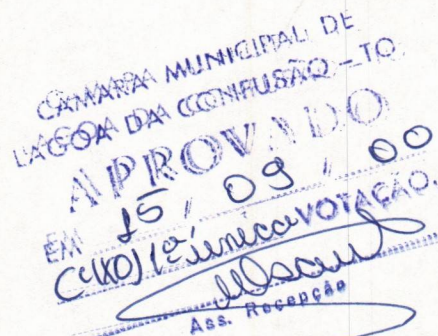 CÂMARA MUNICIPAL DE
LAGOA DA CONFUSÃO - TO
APROVADO
EM 15 , 09 , 00
1ª única VOTAÇÃO.
Ass. Recepção